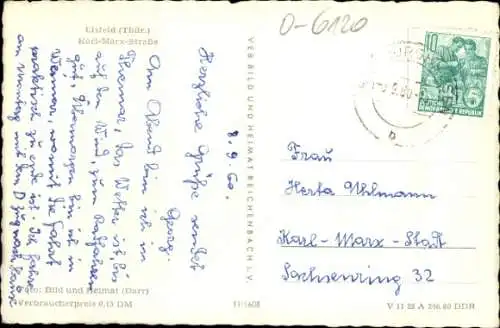 Eisfeld (Thür.)
Karl-Marx-Straße
D-6120
8.9.60.
Herzliche Grüße sendet
Georg.
Am Abend bin ich in
Themar, das Wetter ist, bis
auf den Wind, zum Radfahren
gut. Übermorgen bin ich in
Weimar, womit die Fahrt
praktisch zu Ende ist. Ich fahre
am
mit dem D Zug nach
VEB BILD UND HEIMAT REICHENBACH I. V.
10
Frau
Herta Uhlmann
Karl-Marx-Stadt
Sachsenring 32
Foto: Bild und Heimat (Darr)
Verbraucherpreis 0,15 DM
11/1608
V 11 28 A 246.60 DDR